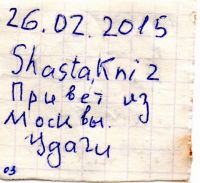 26.02.2015
Shasta,Kni2
Привет из
Москвы.
Удачи
03